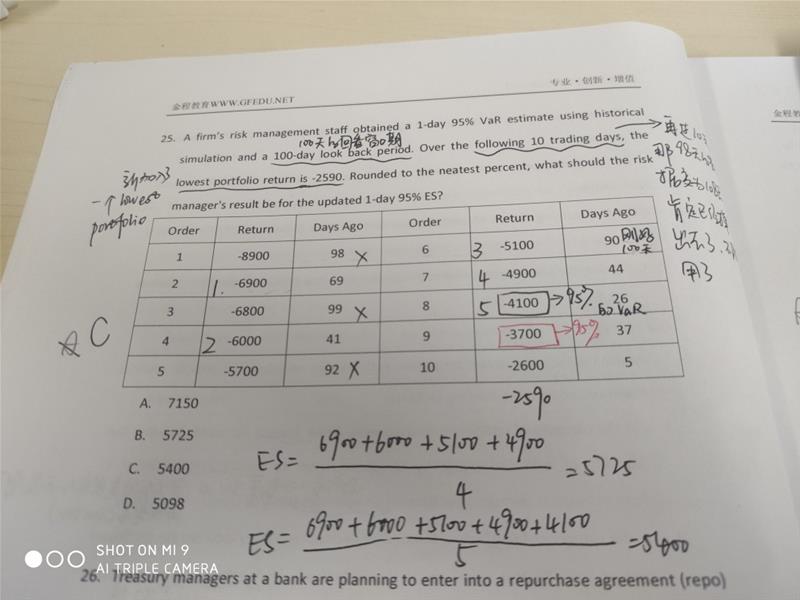 金程教育WWW.GFEDU.NET
专业·创新·增值
25. A firm's risk management staff obtained a 1-day 95% VaR estimate using historical
100天的回看窗口期
simulation and a 100-day look back period. Over the following 10 trading days, the
lowest portfolio return is -2590. Rounded to the neatest percent, what should the risk
manager's result be for the updated 1-day 95% ES?
新加入
一个lowest
portfolio
再过10天
肯定已经
用了
Order Return Days Ago Order Return Days Ago
1 -8900 98 × 6 3 -5100 90 刚好100天
2 1. -6900 69 7 4 -4900 44
3 -6800 99 × 8 5 -4100 → 95% 26
VaR
4 2 -6000 41 9 -3700 → 95% 37
5 -5700 92 × 10 -2600 5
-2590
☆ C
A. 7150
B. 5725
C. 5400
D. 5098
ES = 6900+6000+5100+4900 / 4 = 5725
ES = 6900+6000+5100+4900+4100 / 5 = 5400
SHOT ON MI 9
AI TRIPLE CAMERA
26. Treasury managers at a bank are planning to enter into a repurchase agreement (repo)